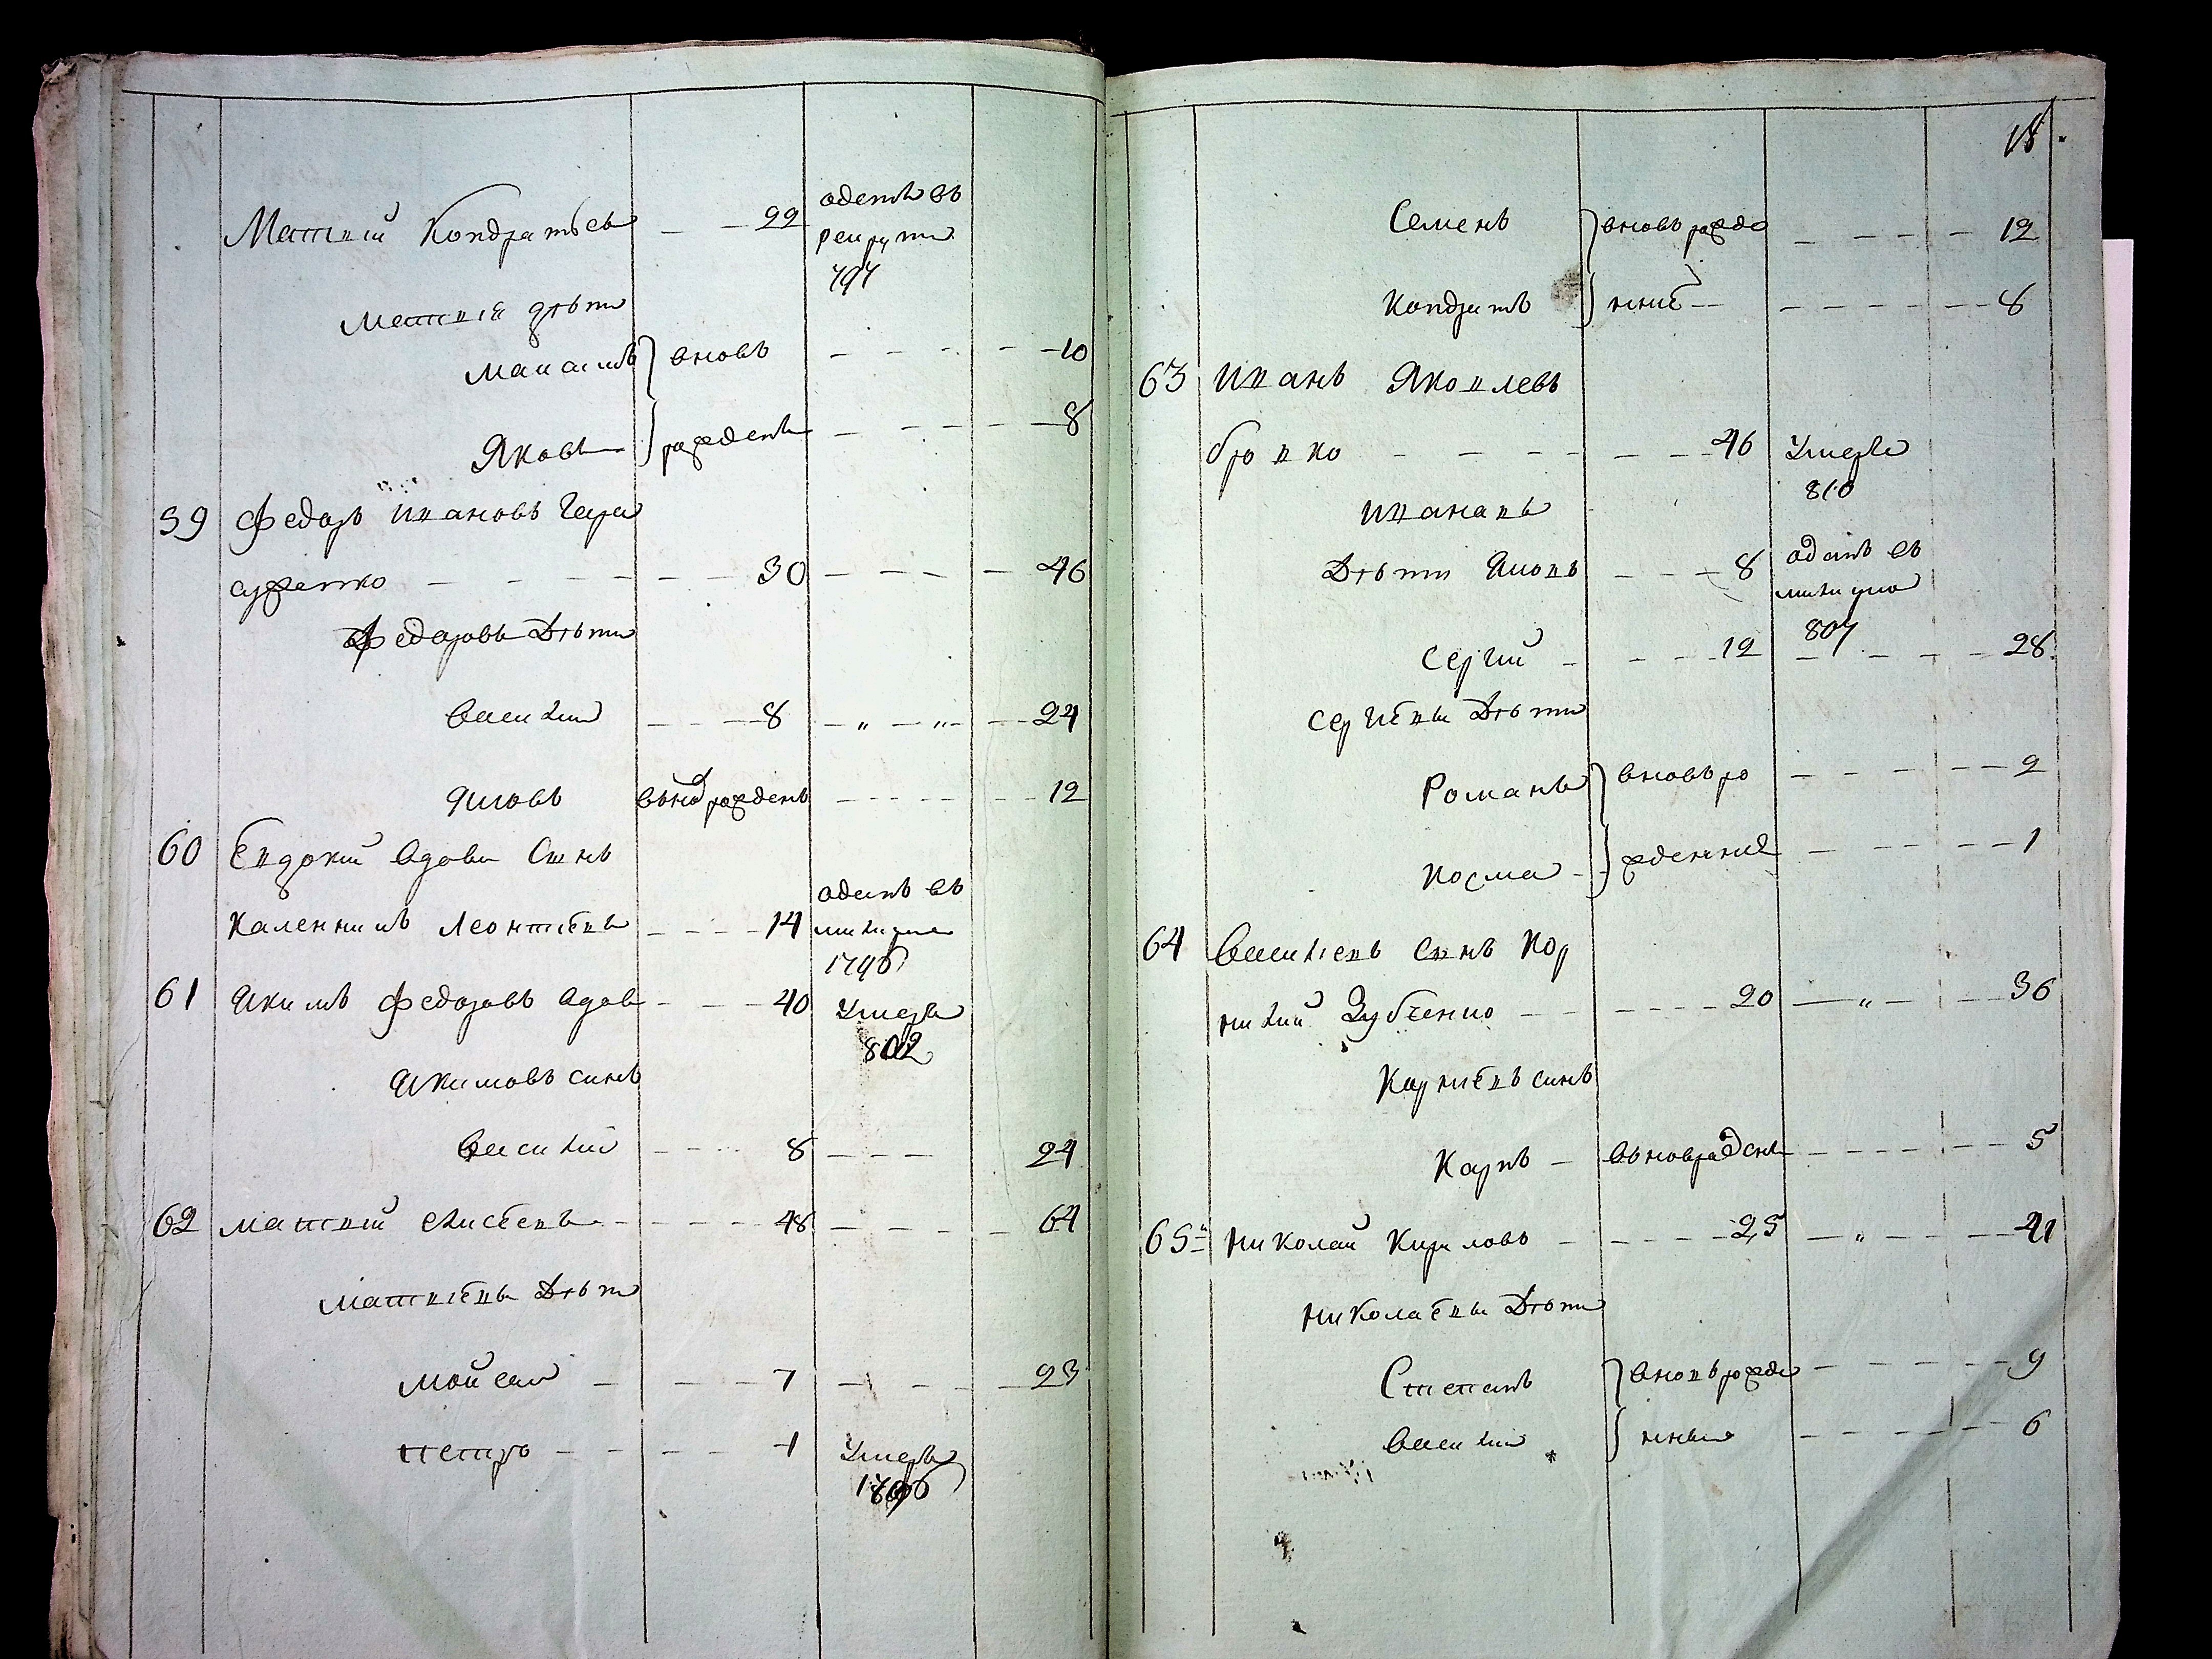 Матвей Кондратьев — — 22 адетъ въ
рекруты
797
Матвея дѣти
Мануилъ } вновь — — — — 10
Яковъ } рожденъ — — — — 8
59 Федоръ Ивановъ Гера
сименко — — — — 30 — — — 46
Федоровы Дѣти
Василий — — 8 — „ — „ — 24
Яковъ вьновь рожденъ — — — — 12
60 Евдокии вдовы Синъ
Каленникъ Леонтиевъ — — — 14 аданъ въ
милицию
1796
61 Якимъ Федоровъ вдов — — 40 Умеръ
802
Якимовъ синъ
Василий — — — 8 — — — 24
62 Матвей — — — 48 — — — — 64
Матвиевы Дѣти
Мойсей — — — 7 — — — — 23
Петро — — — — 1 Умеръ
18
Семенъ } вновь рожде — — — — 12
Кондратъ } нние — — — — — 8
63 Иванъ Яковлевъ
бровко — — — — — — 46 Умеръ
810
Ивановы
Дѣти Яковъ — — — 8 аданъ въ
милицию
807
Сергий — — — 12 — — — — 28
Сергиевы Дѣти
Романъ } вновь ро — — — — 2
Косма — } жденние — — — — 1
64 Василиевъ Синъ Кор
нилий Зубченко — — — — 20 — „ — — 36
Корниевъ синъ
Карпъ — вьновь рожденъ — — — — — 5
65 Николай Кириловъ — — — — 25 — „ — — 41
Николаевы Дѣти
Степанъ } вновь рожде — — — — 9
Василий } нные — — — — — 6